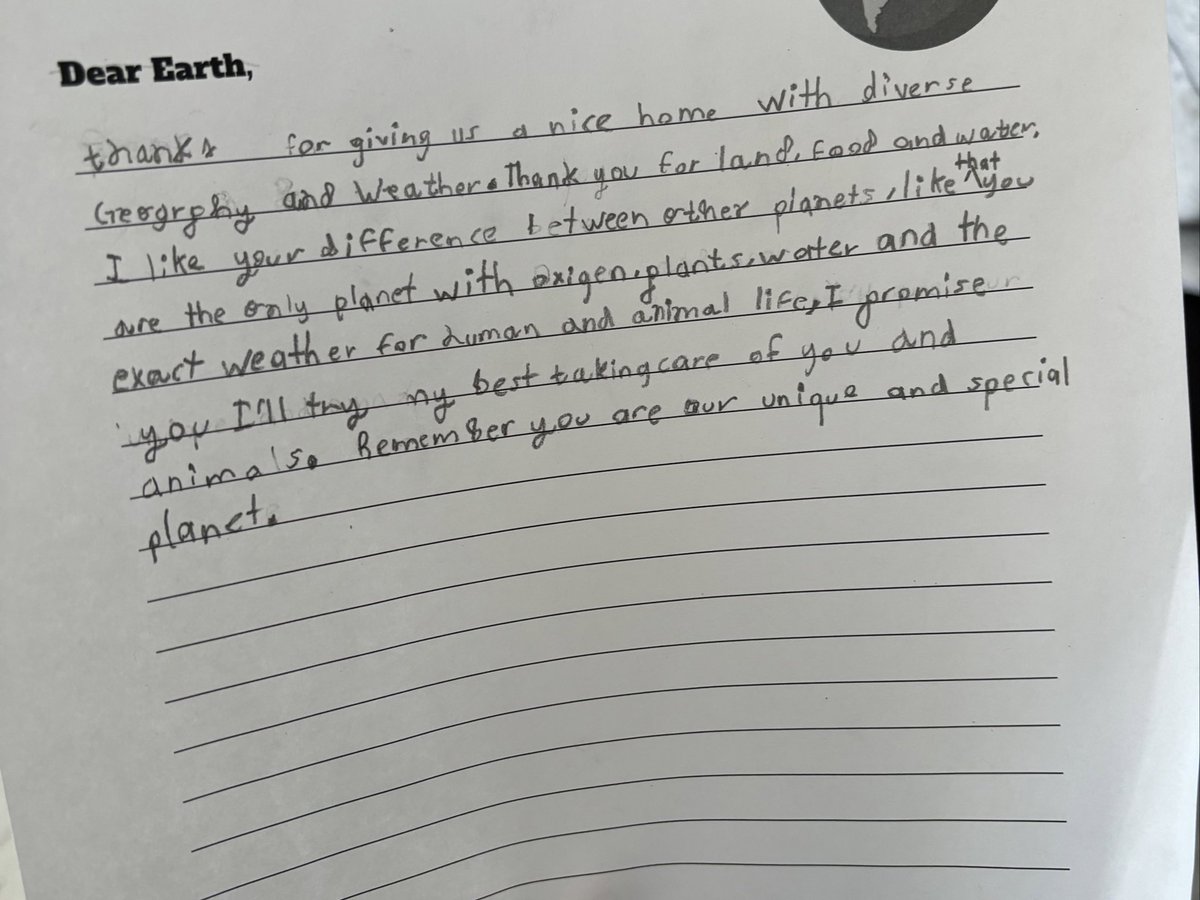 Dear Earth,
thanks for giving us a nice home with diverse
Geogrphy and Weather. Thank you for land, food and water.
I like your difference between other planets, like ^that you
are the only planet with oxigen, plants, water and the
exact weather for human and animal life, I promise
you I'll try my best taking care of you and
animals. Remember you are our unique and special
planet.